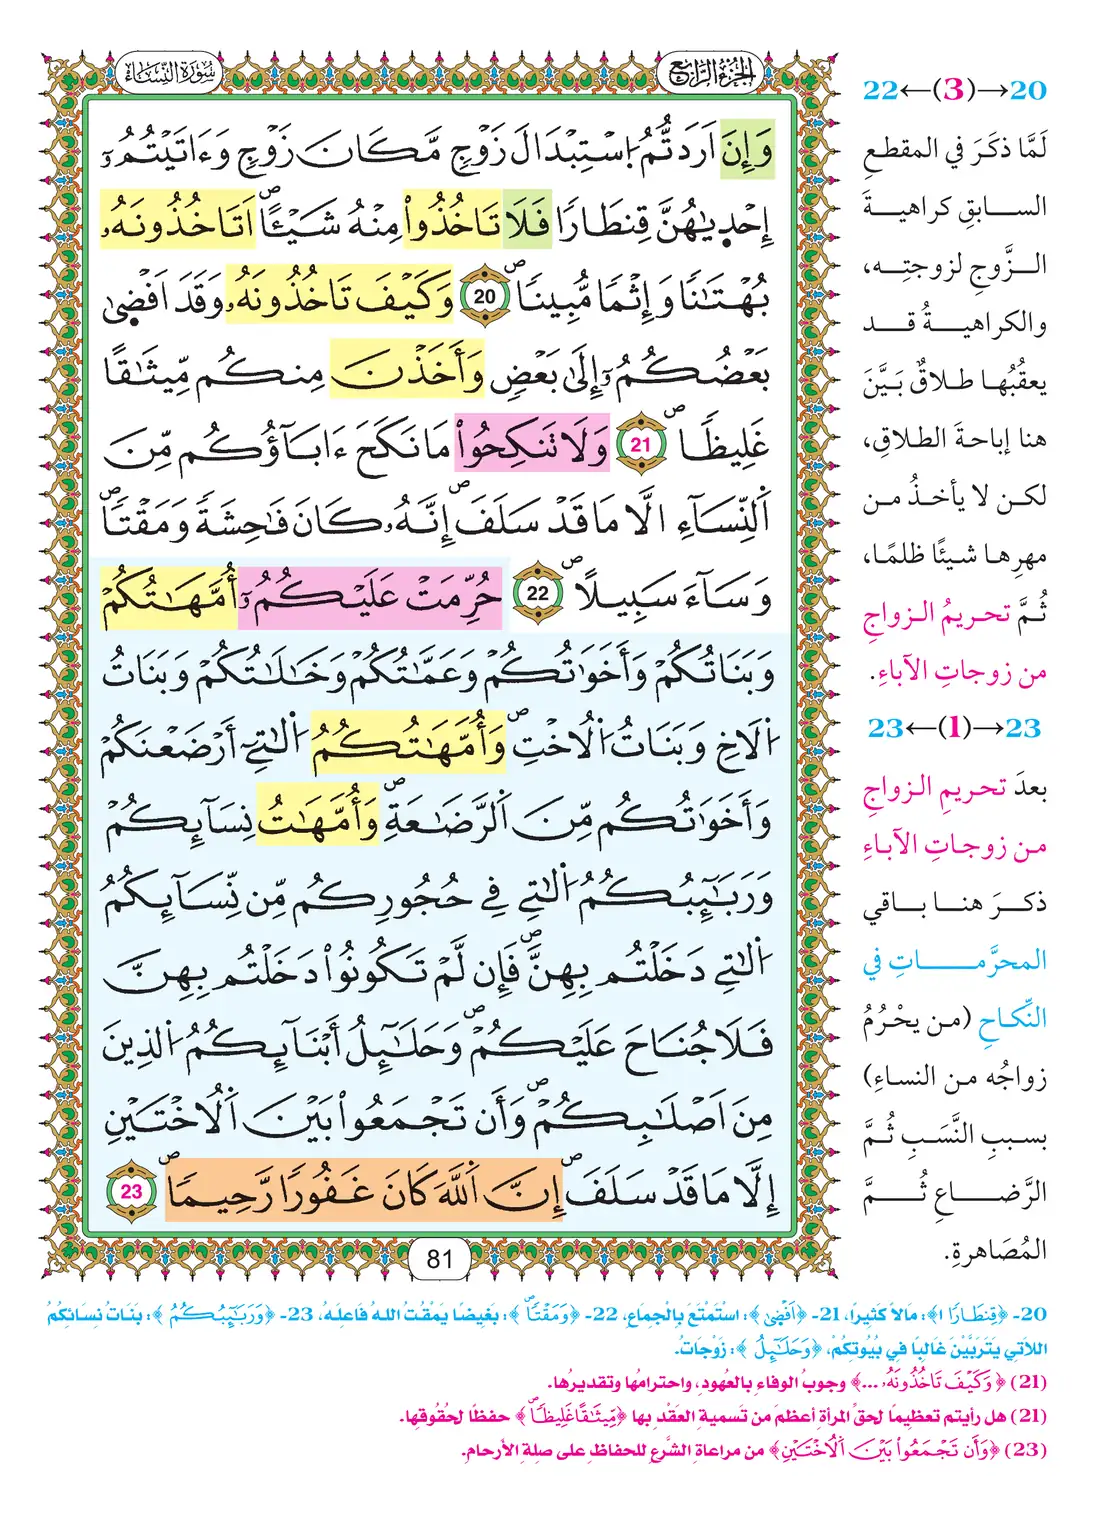 الجزء الرابع
سورة النساء
وَإِنَ اَرَدتُّمُ اِسْتِبْدَالَ زَوْجٖ مَّكَانَ زَوْجٖ وَءَاتَيْتُمُۥٓ
إِحْدٜيٰهُنَّ قِنطَارٗا فَلَا تَاخُذُواْ مِنْهُ شَيْـًٔاۖ اَتَاخُذُونَهُۥ
بُهْتَٰنٗا وَإِثْمٗا مُّبِينٗاۖ 20 وَكَيْفَ تَاخُذُونَهُۥ وَقَدَ اَفْضٜىٰ
بَعْضُكُمُۥٓ إِلَىٰ بَعْضٖ وَأَخَذْنَ مِنكُم مِّيثَٰقًا
غَلِيظٗاۖ 21 وَلَا تَنكِحُواْ مَا نَكَحَ ءَابَآؤُكُم مِّنَ
اَ۬لنِّسَآءِ الَّا مَا قَدْ سَلَفَۖ إِنَّهُۥ كَانَ فَٰحِشَةٗ وَمَقْتٗاۖ
وَسَآءَ سَبِيلًاۖ 22 حُرِّمَتْ عَلَيْكُمُۥٓ أُمَّهَٰتُكُمْ
وَبَنَاتُكُمْ وَأَخَوَٰتُكُمْ وَعَمَّٰتُكُمْ وَخَٰلَٰتُكُمْ وَبَنَاتُ
اُ۬لَاخِ وَبَنَاتُ اُ۬لُاخْتِۖ وَأُمَّهَٰتُكُمُ اُ۬لٰتِےٓ أَرْضَعْنَكُمْ
وَأَخَوَٰتُكُم مِّنَ اَ۬لرَّضَٰعَةِۖ وَأُمَّهَٰتُ نِسَآئِكُمْ
وَرَبَٰٓئِبُكُمُ اُ۬لٰتِے فِے حُجُورِكُم مِّن نِّسَآئِكُمُ
اُ۬لٰتِے دَخَلْتُم بِهِنَّۖ فَإِن لَّمْ تَكُونُواْ دَخَلْتُم بِهِنَّ
فَلَا جُنَاحَ عَلَيْكُمْۖ وَحَلَٰٓئِلُ أَبْنَآئِكُمُ اُ۬لذِينَ
مِنَ اَصْلَٰبِكُمْۖ وَأَن تَجْمَعُواْ بَيْنَ اَ۬لُاخْتَيْنِ
إِلَّا مَا قَدْ سَلَفَۖ إِنَّ اَ۬للَّهَ كَانَ غَفُورٗا رَّحِيمٗاۖ 23
81
20→(3)←22
لَمَّا ذكَرَ في المقطعِ
السابقِ كراهيةَ
الزَّوجِ لزوجتِه،
والكراهيةُ قد
يعقبُها طلاقٌ بَيَّنَ
هنا إباحةَ الطلاقِ،
لكن لا يأخذُ من
مهرِها شيئًا ظلمًا،
ثُمَّ تحريمُ الزواجِ
من زوجاتِ الآباءِ.
23→(1)←23
بعدَ تحريمِ الزواجِ
من زوجاتِ الآباءِ
ذكرَ هنا باقي
المحرَّماتِ في
النِّكاحِ (من يحْرُمُ
زواجُه من النساءِ)
بسببِ النَّسَبِ ثُمَّ
الرَّضاعِ ثُمَّ
المُصَاهرةِ.
20- ﴿قِنطَارٗا﴾: مَالاً كَثِيرًا، 21- ﴿اَفْضٜىٰ﴾: اسْتَمْتَعَ بِالْجِمَاعِ، 22- ﴿وَمَقْتٗاۖ﴾: بَغِيضًا يَمْقُتُ اللهُ فَاعِلَهُ، 23- ﴿وَرَبَٰٓئِبُكُمُ﴾: بَنَاتُ نِسَائِكُمُ
اللاتِي يَتَرَبَّيْنَ غَالِبًا فِي بُيُوتِكُمْ، ﴿وَحَلَٰٓئِلُ﴾: زَوْجَاتُ.
(21) ﴿وَكَيْفَ تَاخُذُونَهُۥ ...﴾ وجوبُ الوفاءِ بالعُهودِ، واحترامُها وتقديرُها.
(21) هل رأيتم تعظيمًا لحقِّ المرأةِ أعظمَ من تَسميةِ العَقْدِ بها ﴿مِّيثَٰقًا غَلِيظٗاۖ﴾ حفظًا لحُقُوقِها.
(23) ﴿وَأَن تَجْمَعُواْ بَيْنَ اَ۬لُاخْتَيْنِ﴾ من مراعاةِ الشَّرعِ للحفاظِ على صلةِ الأرحامِ.